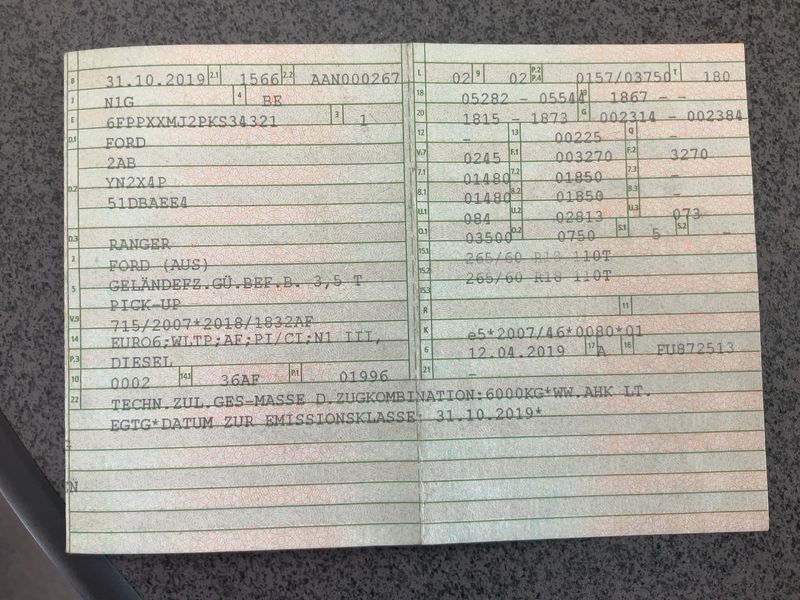 B 31.10.2019 2.1 1566 2.2 AAN000267
J N1G 4 BE
E 6FPPXXMJ2PKS34321 3 1
D.1 FORD
2AB
D.2 YN2X4P
51DBAEE4
D.3 RANGER
2 FORD (AUS)
5 GELÄNDEFZ.GÜ.BEF.B. 3,5 T
PICK-UP
V.9 715/2007*2018/1832AF
14 EURO6;WLTP;AF;PI/CI;N1 III,
P.3 DIESEL
10 0002 14.1 36AF P.1 01996
22 TECHN.ZUL.GES-MASSE D.ZUGKOMBINATION:6000KG*WW.AHK LT.
EGTG*DATUM ZUR EMISSIONSKLASSE: 31.10.2019*
N
L 02 9 02 P.2 P.4 0157/03750 T 180
18 05282 - 05544 19 1867 - -
20 1815 - 1873 G 002314 - 002384
12 - 13 00225 Q -
V.7 0245 F.1 003270 F.2 3270
7.1 01480 7.2 01850 7.3 -
8.1 01480 8.2 01850 8.3 -
U.1 084 U.2 02813 U.3 073
O.1 03500 O.2 0750 S.1 5 S.2 -
15.1 265/60 R18 110T
15.2 265/60 R18 110T
15.3
R 11
K e5*2007/46*0080*01
6 12.04.2019 17 A 16 FU872513
21 -